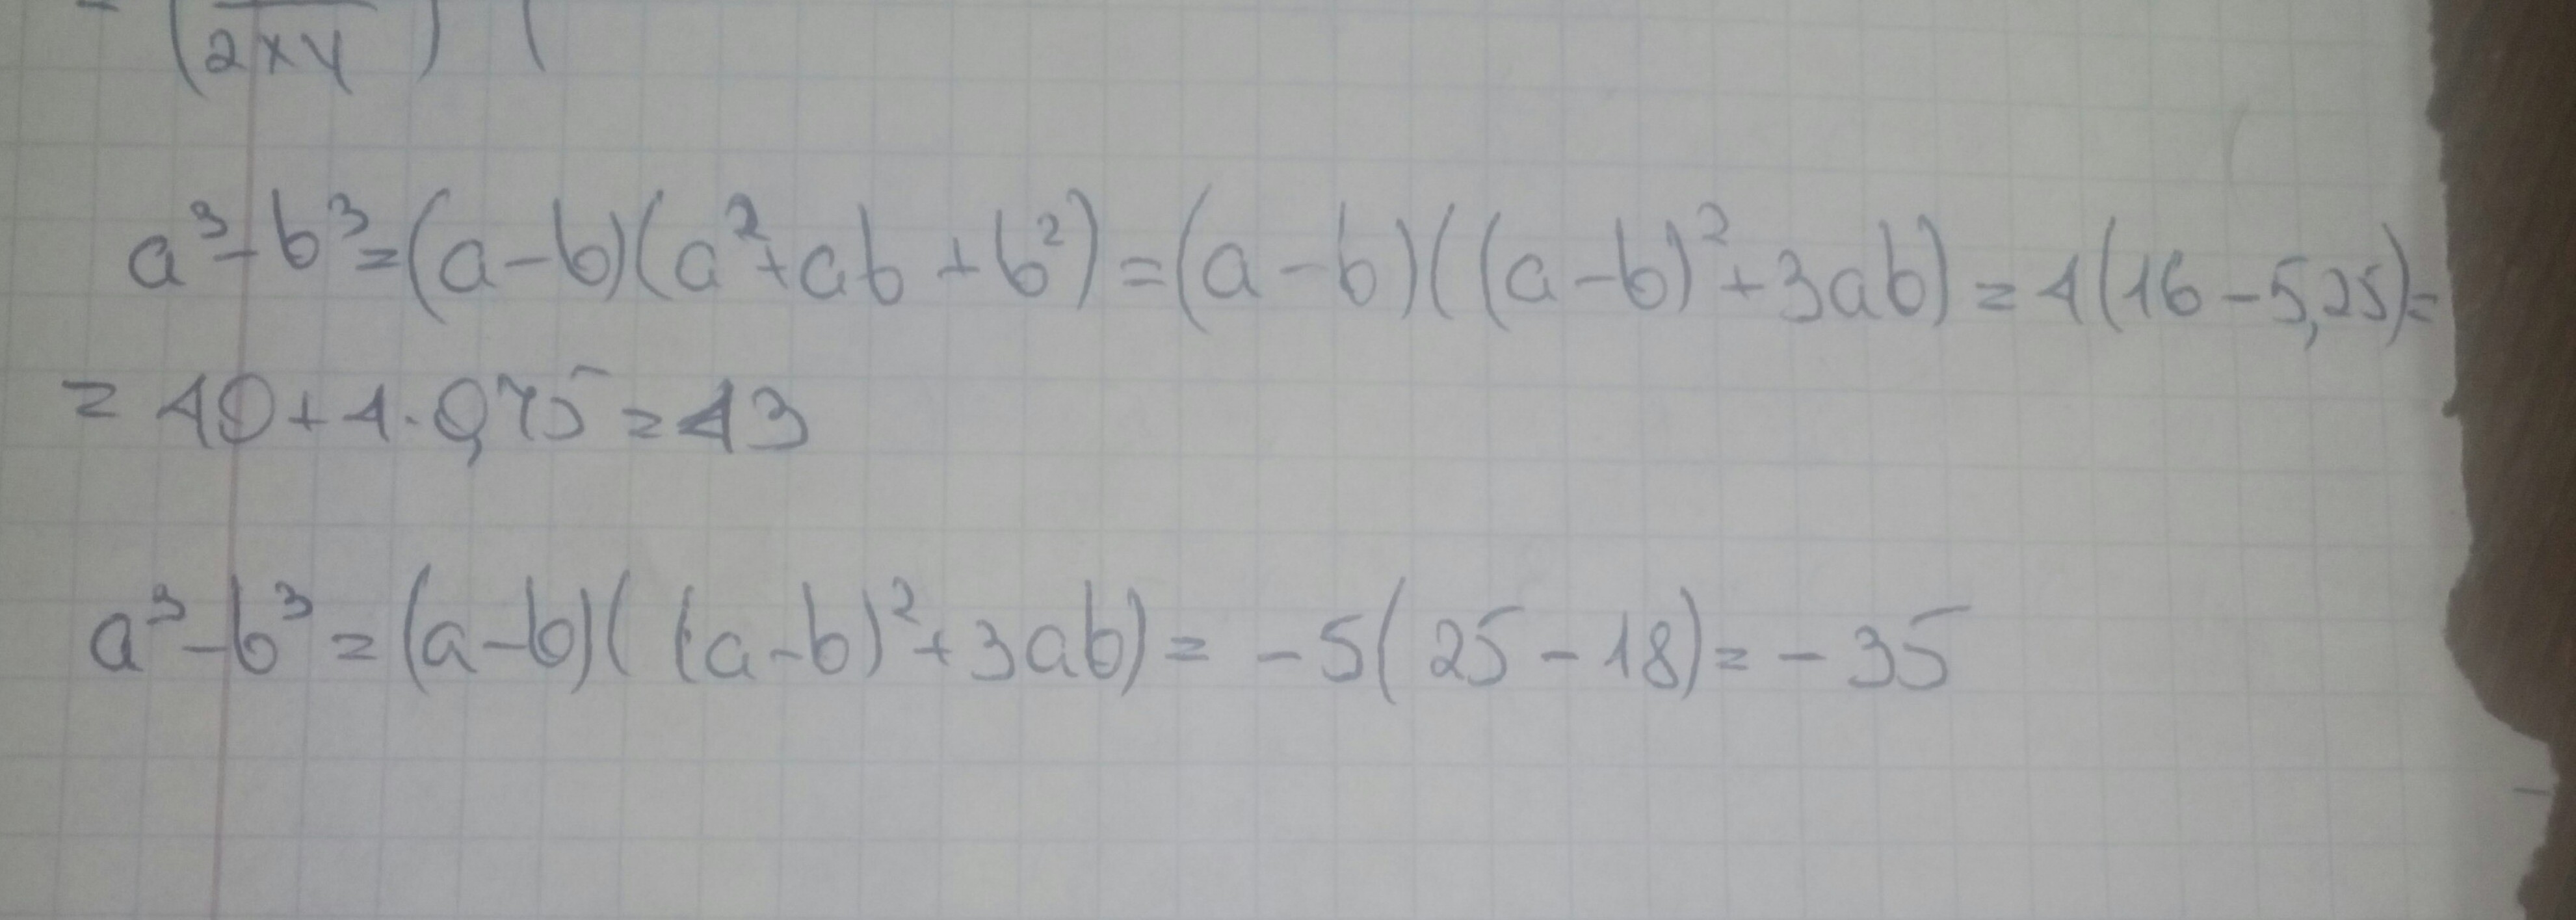 (2xy) (
a³-b³=(a-b)(a²+ab+b²)=(a-b)((a-b)²+3ab)=4(16-5,25)=
=40+4·0,75=43
a³-b³=(a-b)((a-b)²+3ab)=-5(25-18)=-35